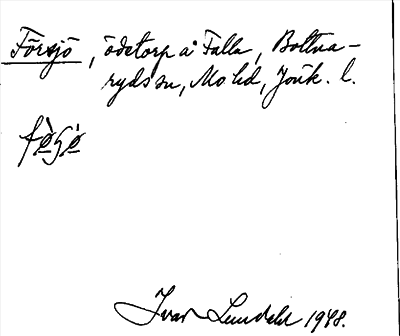 Försjö, ödetorp å Falla, Bottna-
ryds sn, Mo hd, Jönk. l.
fö̀ʂö̀
Ivar Lundahl 1948.